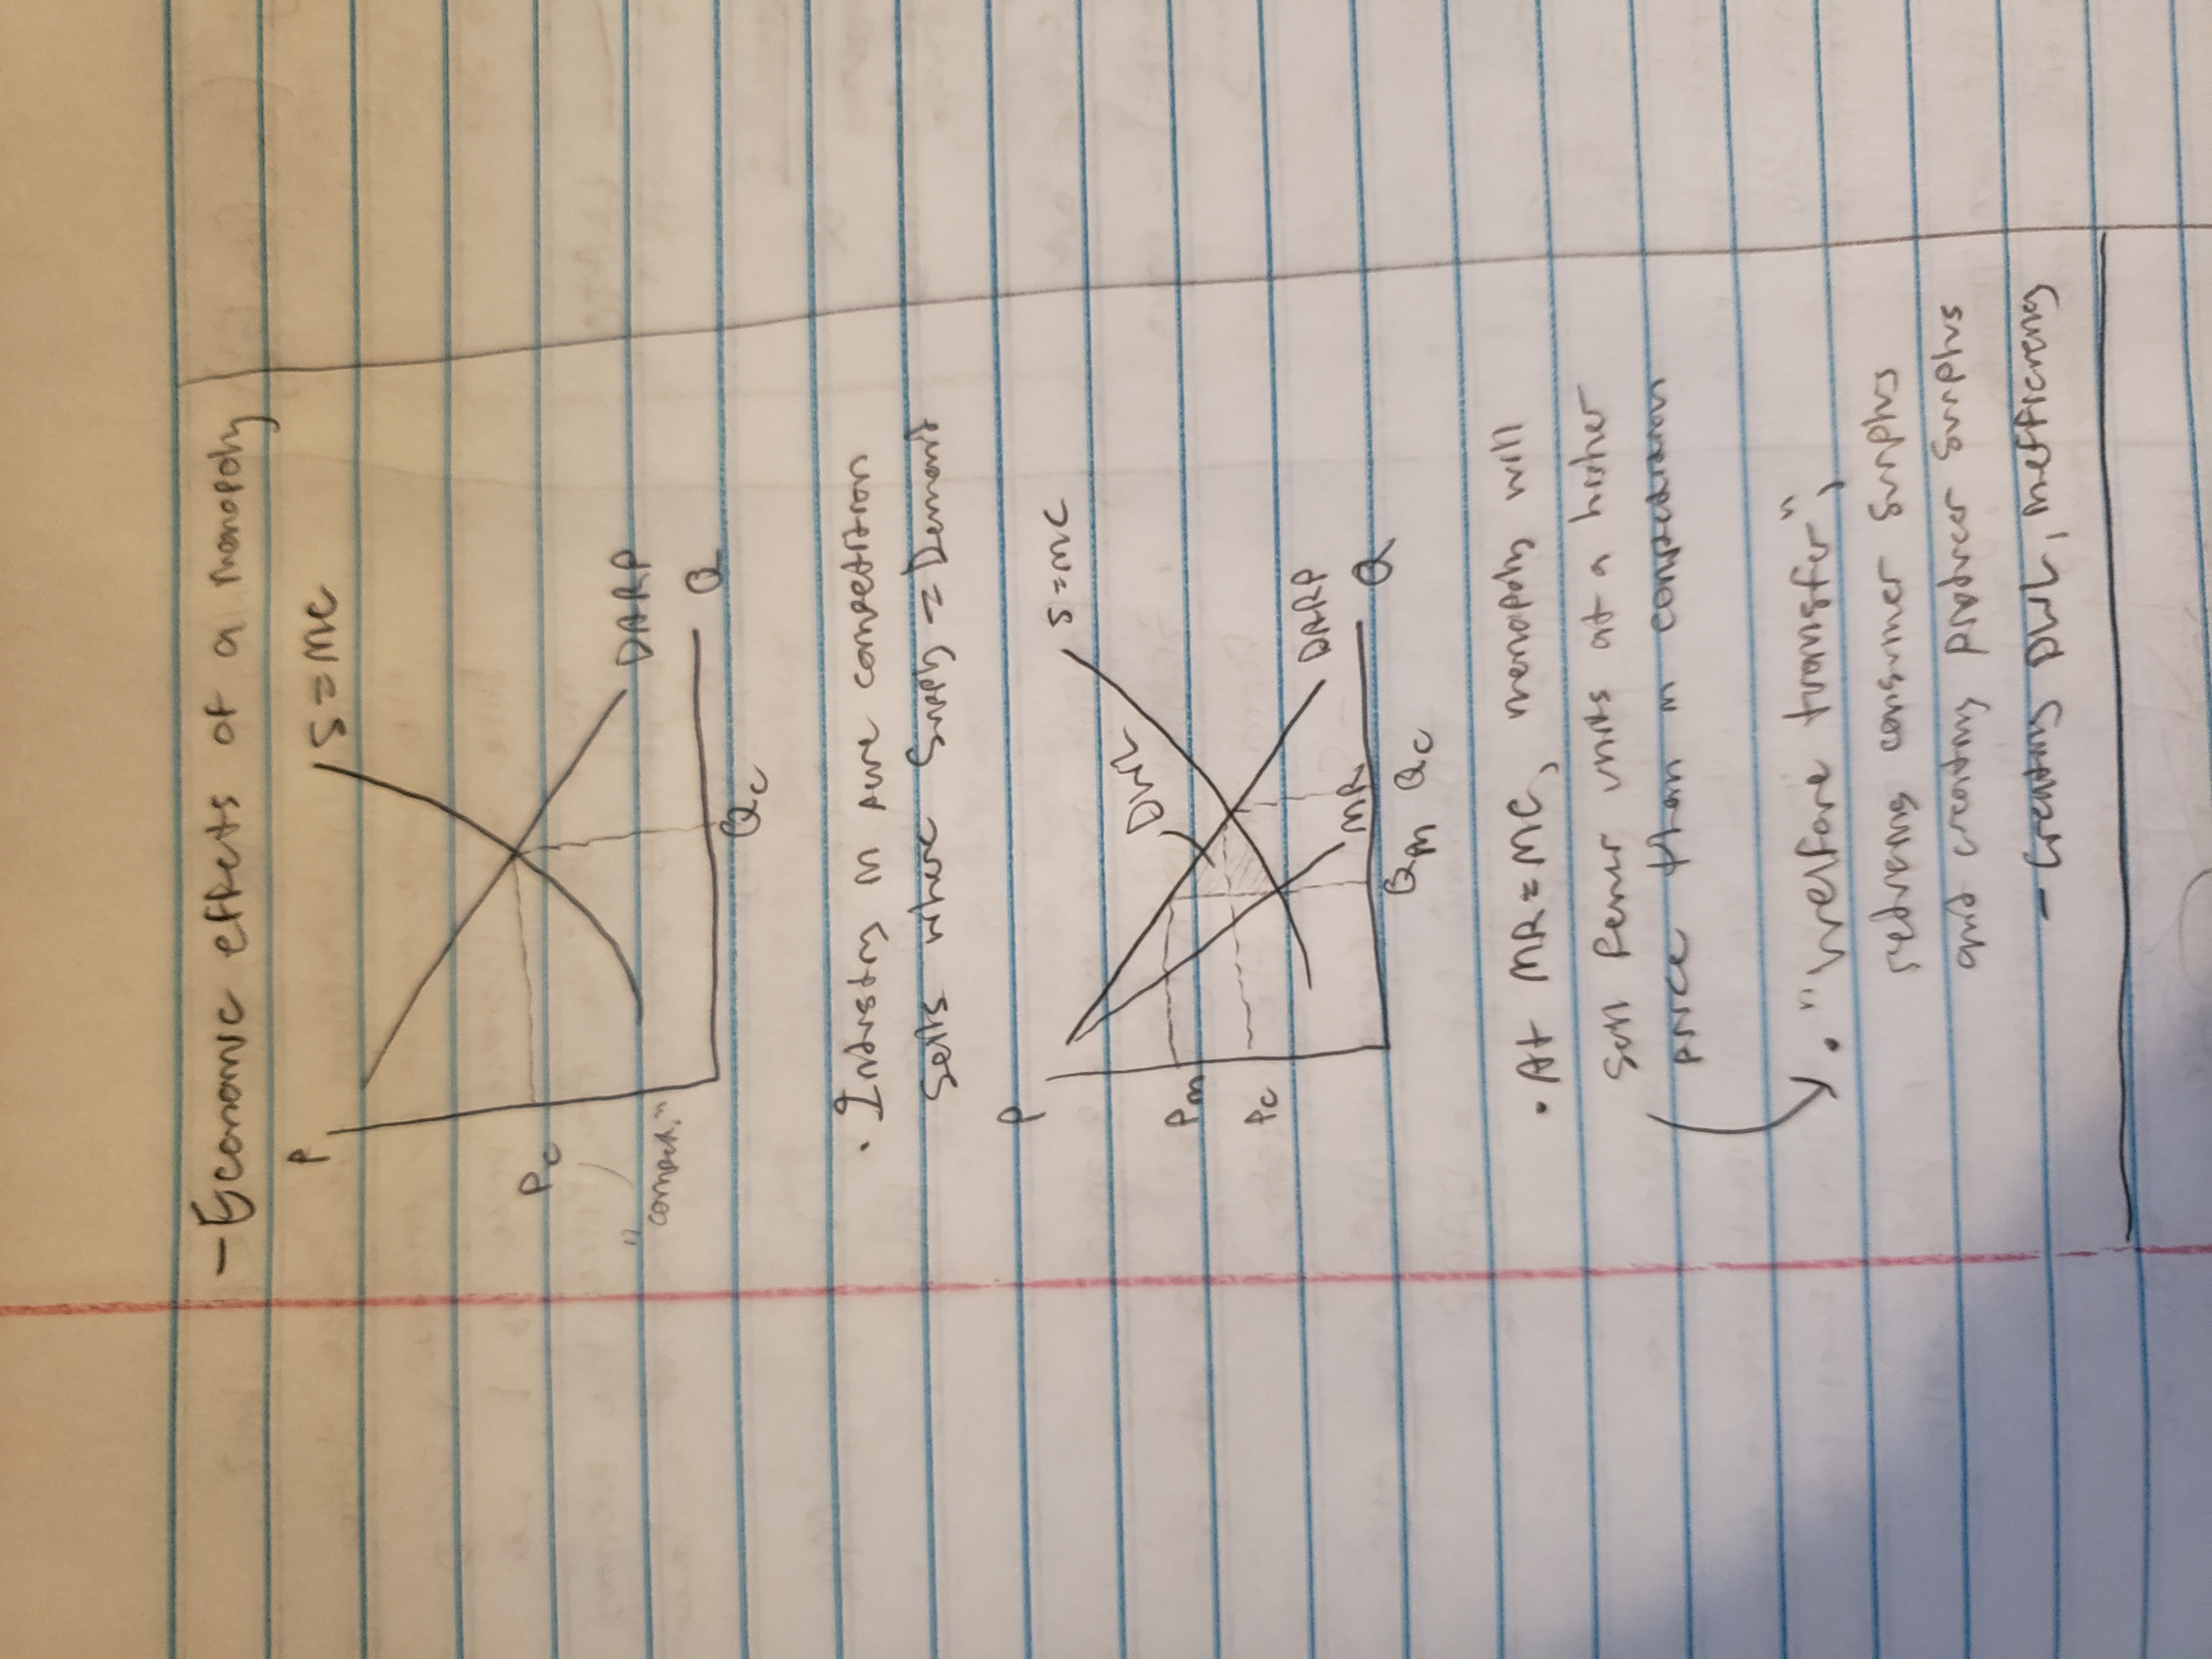 - Economic effects of a monopoly
P
S=MC
Pc
"compet."
DARP
Q
Qc
• Industry in pure competition
sells where Supply = Demand
P
S=MC
DWL
Pm
Pc
DARP
MR
Q
Qm Qc
• At MR=MC, monopoly will
sell fewer units at a higher
price than in competition
• "welfare transfer",
reducing consumer surplus
and creating producer surplus
- Creating DWL, inefficiency